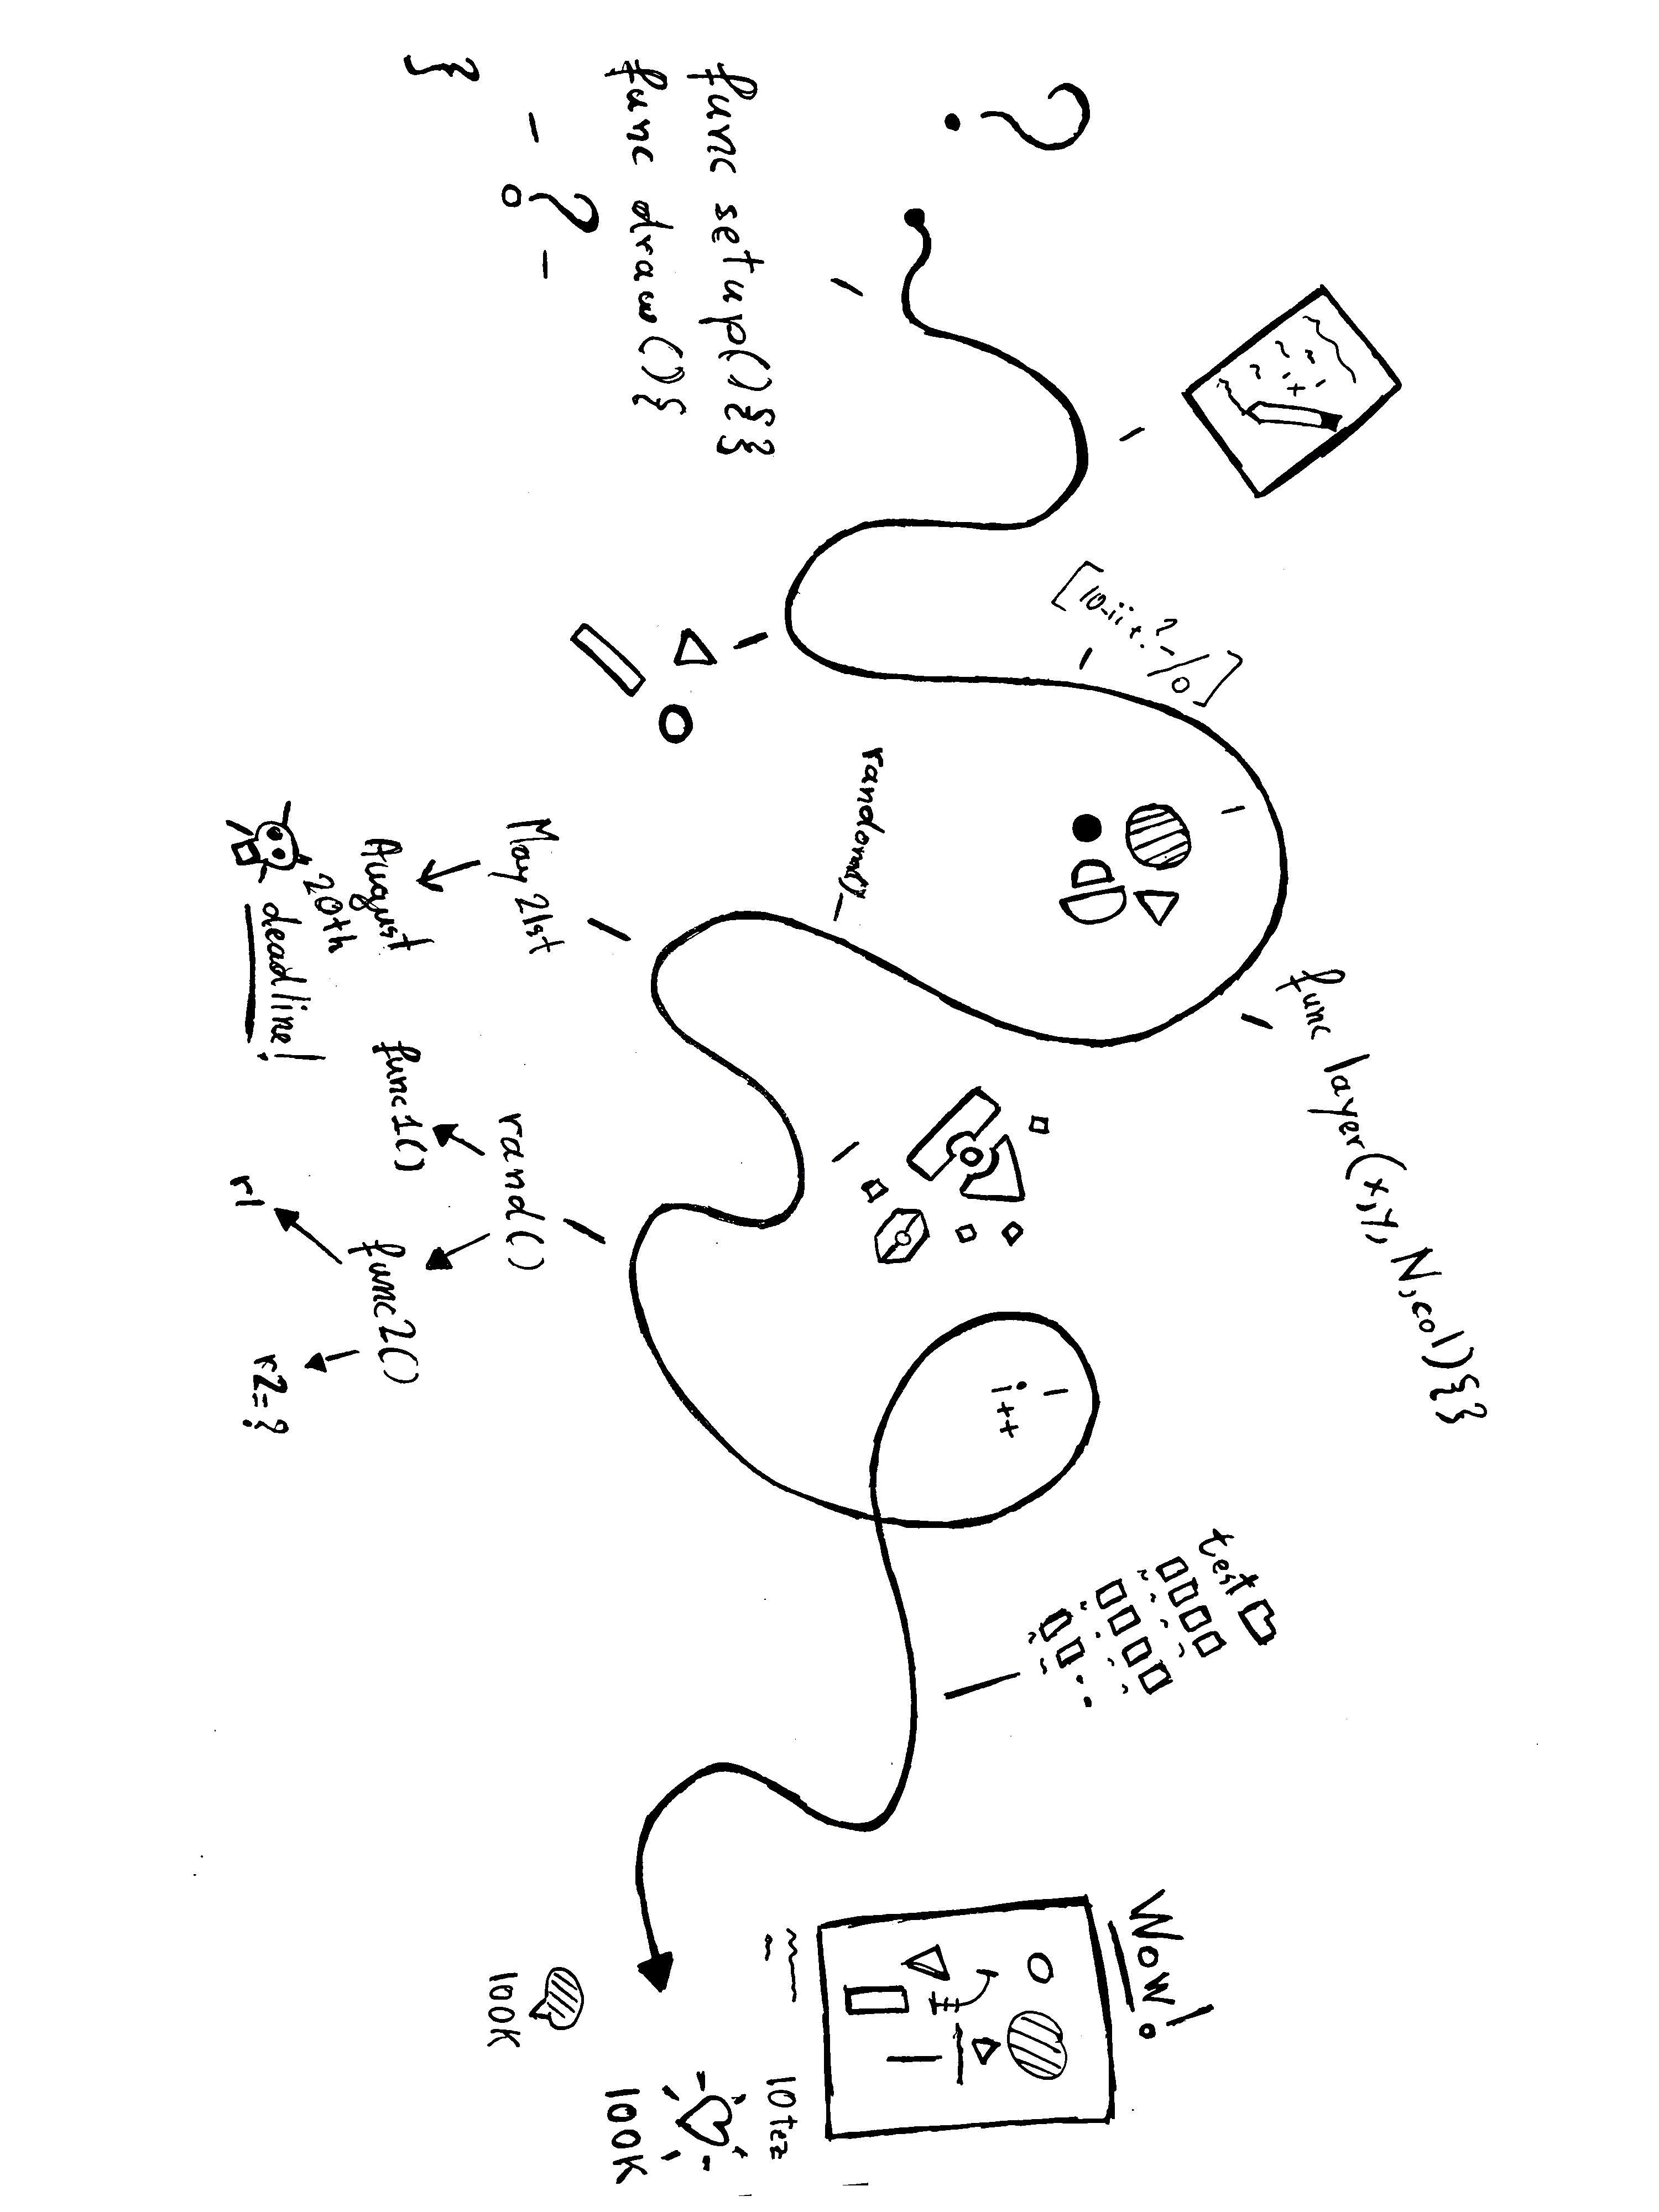 ?
func setup(){}
func draw(){
- ? -
}
[10-ii+?-/0]
random()
func layer(x,y,N,col){}
May 21st
August
20th
deadline!
rand()
func1()
func2()
r1
r2=?
i++
test
Wow!
10tez
100K
100K